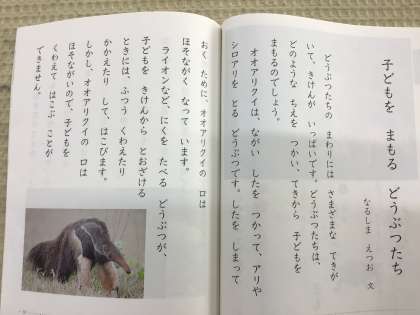 子どもを まもる どうぶつたち
なるしま えつお 文
どうぶつたちの まわりには さまざまな てきが
いて、きけんが いっぱいです。どうぶつたちは、
どのような ちえを つかい、てきから 子どもを
まもるのでしょう。
オオアリクイは、ながい したを つかって、アリや
シロアリを とる どうぶつです。したを しまって
おく ために、オオアリクイの 口は
ほそながく なって います。
ライオンなど、にくを たべる どうぶつが、
子どもを きけんから とおざける
ときには、ふつう くわえたり
かかえたり して、はこびます。
しかし、オオアリクイの 口は
ほそながいので、子どもを
くわえて はこぶ ことが
できません。